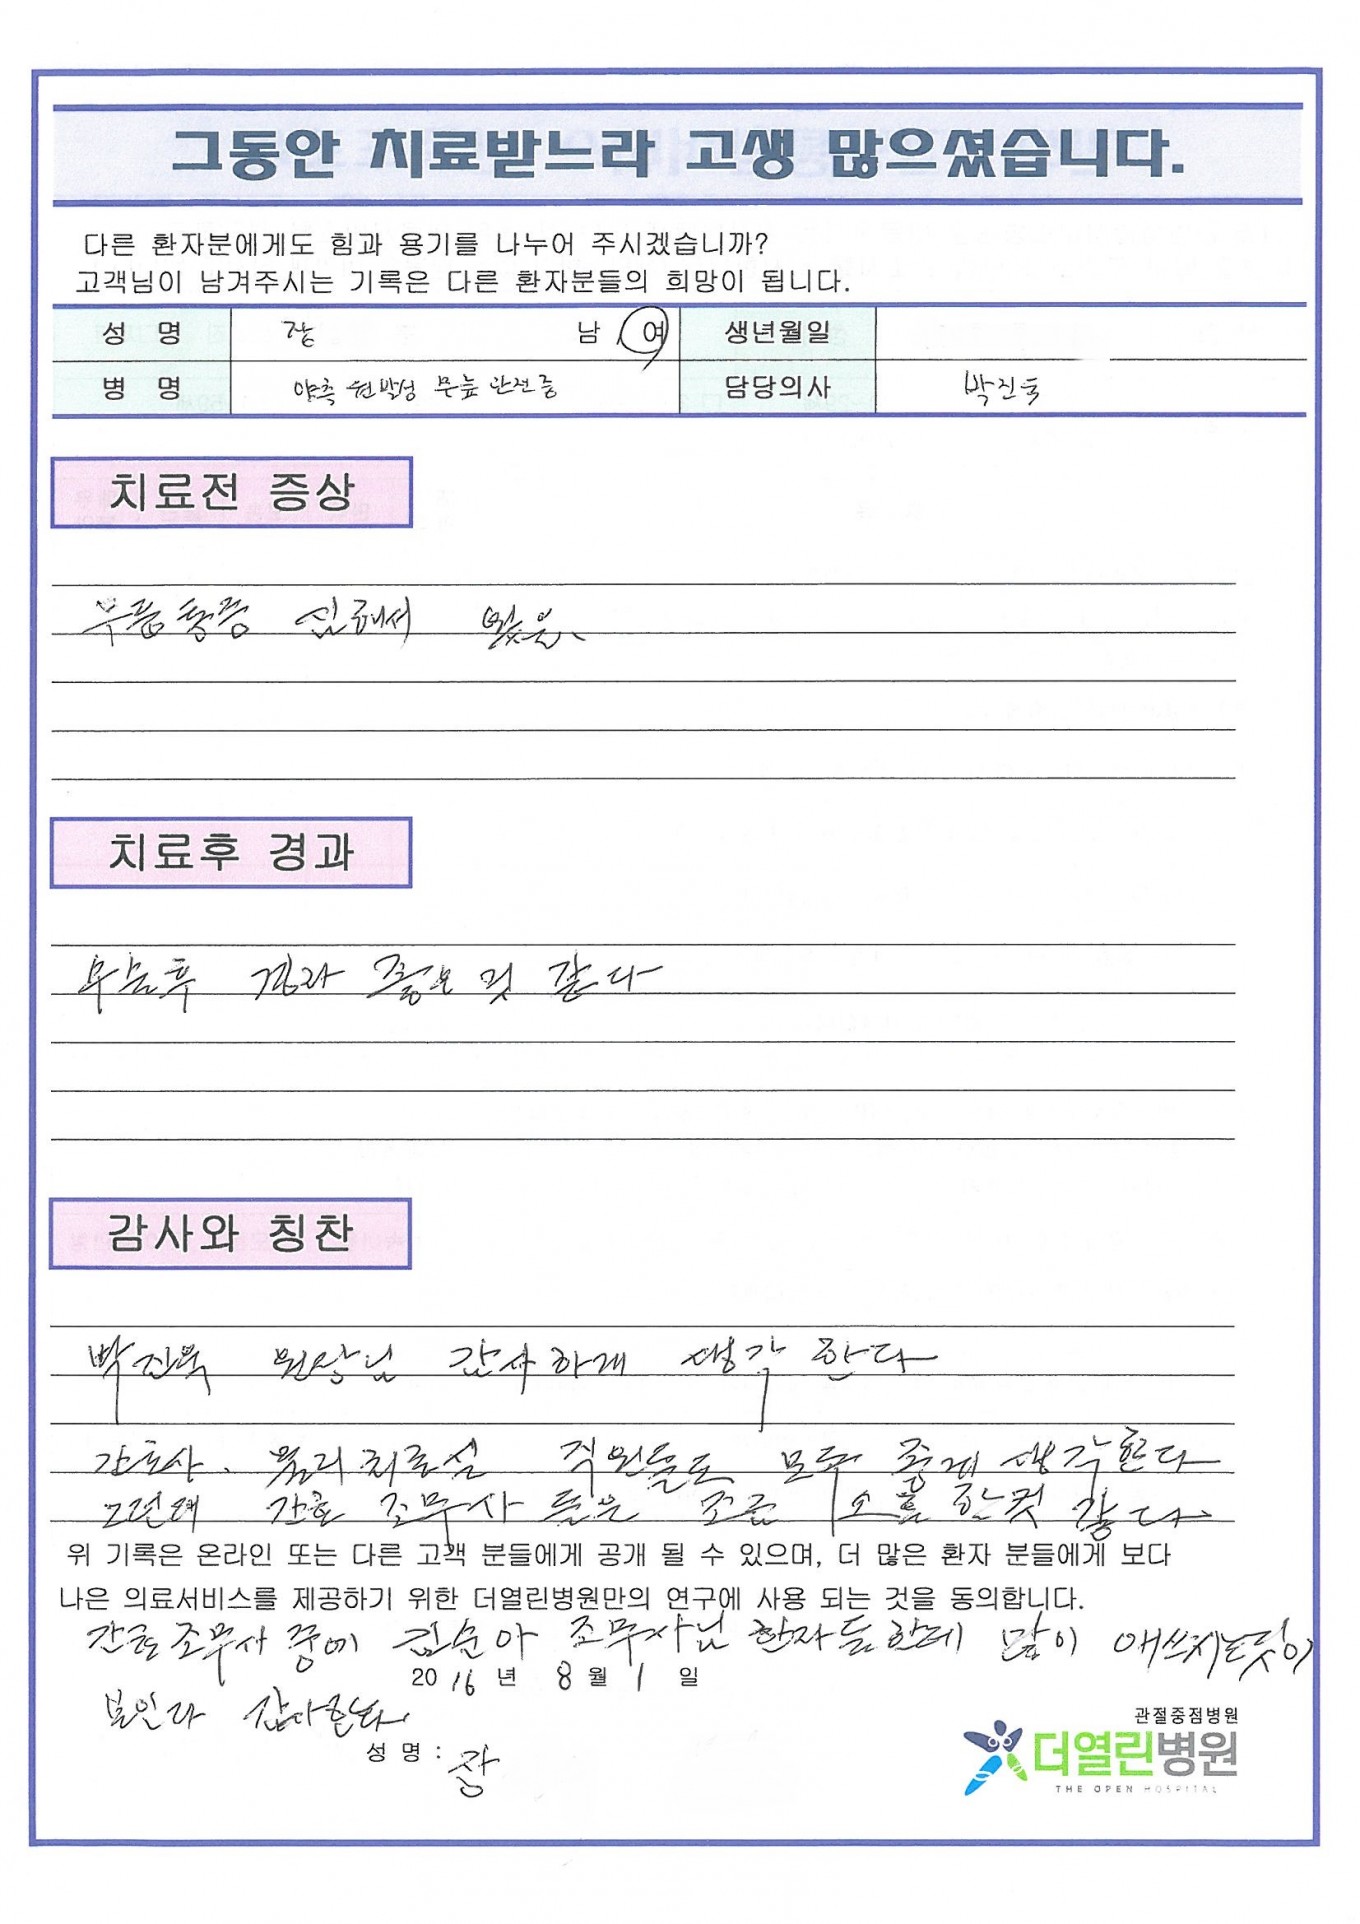 그동안 치료받느라 고생 많으셨습니다.
다른 환자분에게도 힘과 용기를 나누어 주시겠습니까?
고객님이 남겨주시는 기록은 다른 환자분들의 희망이 됩니다.
성 명 장 남 여 생년월일
병 명 양측 원발성 무릎 관전증 담당의사 박진욱
치료전 증상
무릎통증 심해서
치료후 경과
경과 좋은 것 같다
감사와 칭찬
박진욱 원장님 감사하게 생각 한다
간호사. 물리치료실 직원들도 모두 좋게 생각한다
그런데 간호 조무사 들은 조금 소홀한것 같다.
위 기록은 온라인 또는 다른 고객 분들에게 공개 될 수 있으며, 더 많은 환자 분들에게 보다
나은 의료서비스를 제공하기 위한 더열린병원만의 연구에 사용 되는 것을 동의합니다.
간호조무사 중에 김순아 조무사님 환자들한테 많이 애쓰시는것이
2016 년 8 월 1 일
보인다 감사한다.
성 명 : 장
관절중점병원
더열린병원
THE OPEN HOSPITAL